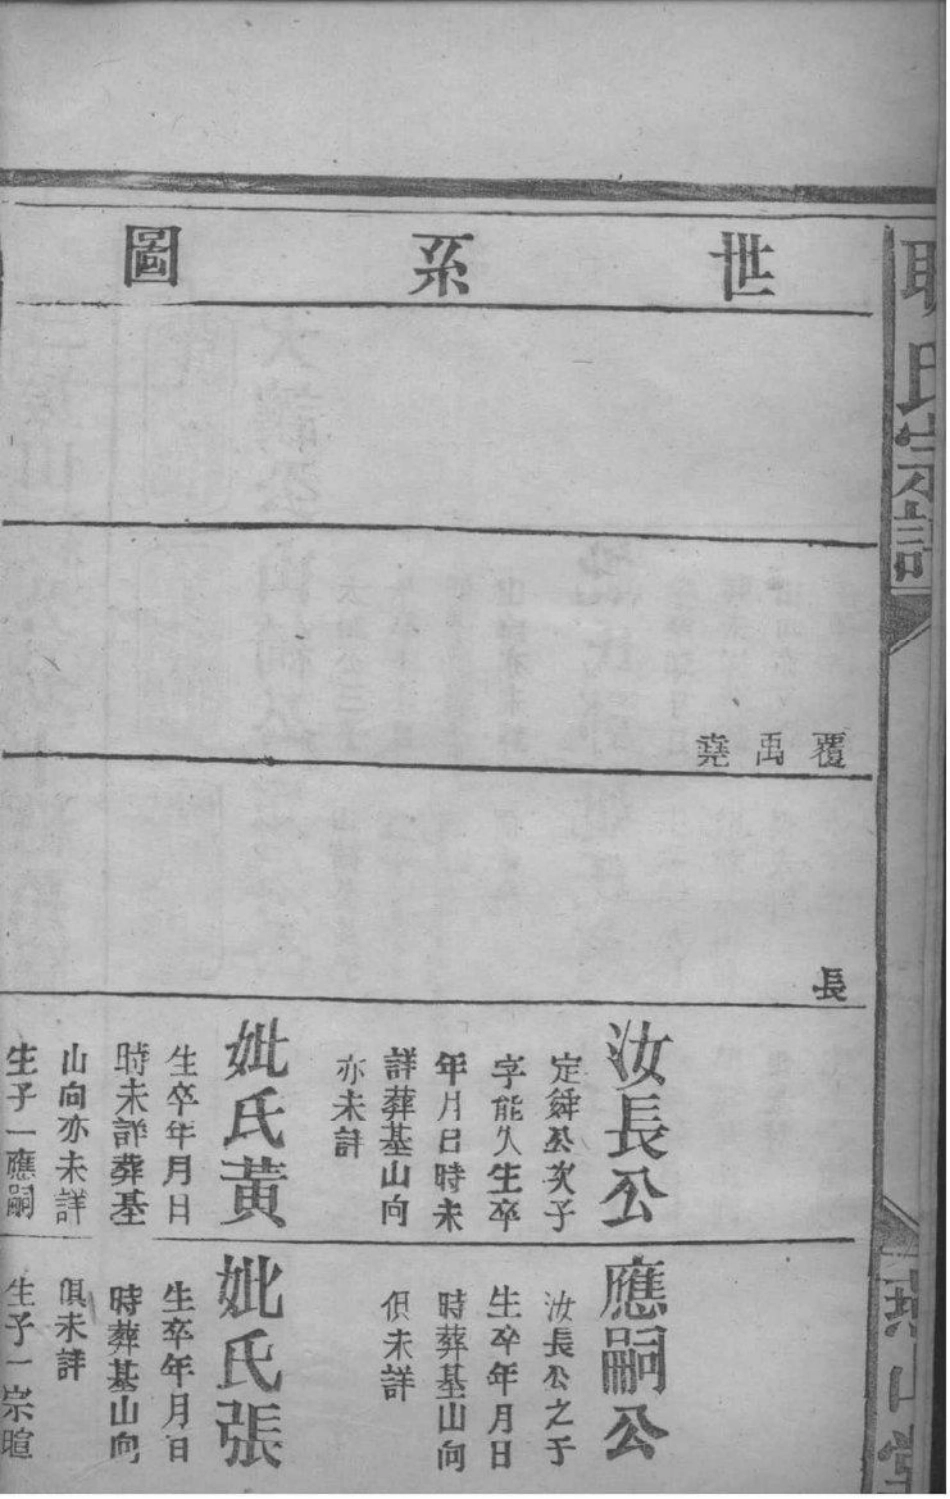 氏宗譜
世系圖
覆
禹
堯
長
汝長公
定舜公次子
字能久生卒
年月日時未
詳葬基山向
亦未詳
妣氏黃
生卒年月日
時未詳葬基
山向亦未詳
生子一應嗣
應嗣公
汝長公之子
生卒年月日
時葬基山向
俱未詳
妣氏張
生卒年月日
時葬基山向
俱未詳
生子一宗暄
山堂